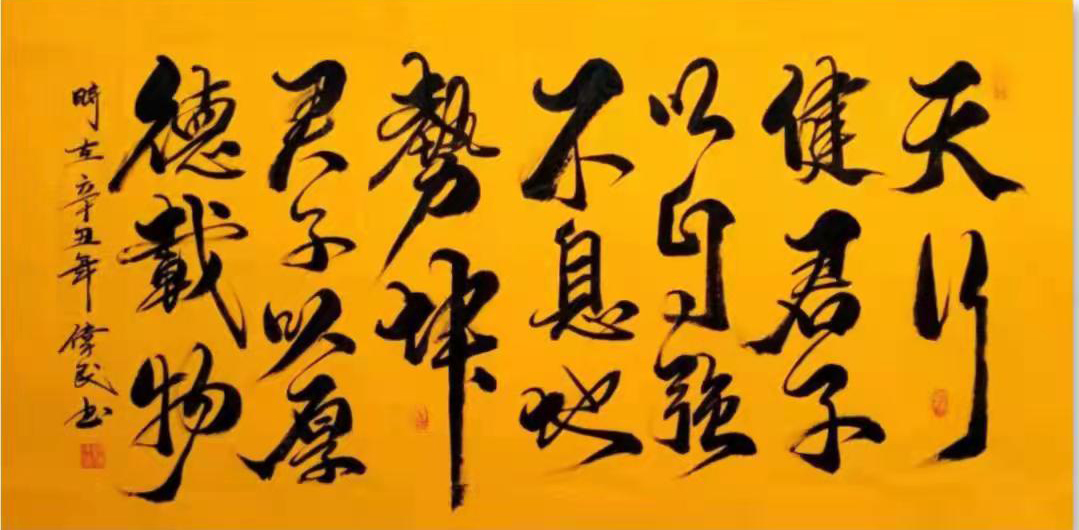 天行
健君子
以自强
不息地
勢坤
君子以厚
德載物
時在辛丑年偉民书